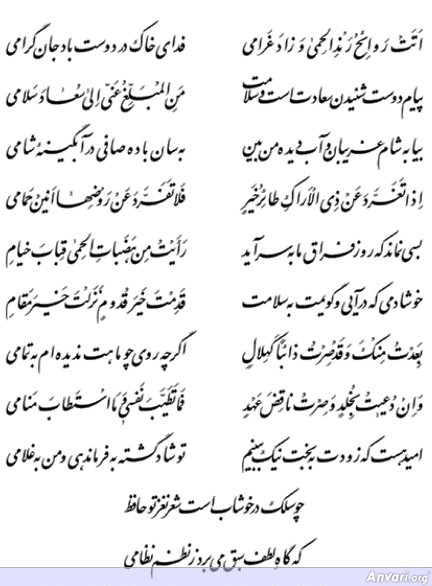 اَتَتْ رَوائِحُ رَنْدِ الْحِمیٰ وَ زادَ غَرامی فدای خاک در دوست باد جان گرامی
پیام دوست شنیدن سعادت است و سلامت مَنِ الْمُبَلِّغُ عَنّی اِلیٰ سُعادَ سَلامی
بیا به شام غریبان و آب دیده من بین به سان باده صافی در آبگینهٔ شامی
اِذا تُغَرِّدَ عَنْ ذِی الْاَراکِ طائِرُ خَیْرٍ فَلا تَفَرَّدَ عَنْ رَوْضِها اَنینُ حَمامی
بسی نماند که روز فراق ما به سر آید رَاَیْتُ مِنْ هَضَباتِ الْحِمیٰ قِبابَ خیامِ
خوشا دمی که درآیی و گویمت به سلامت قَدِمْتَ خَیْرَ قُدومٍ نَزَلْتَ خَیْرَ مَقامِ
بَعُدْتُ مِنْکَ وَ قَدْ صِرْتُ ذائِباً کَهِلالٍ اگرچه روی چو ماهت ندیده‌ام به تمامی
وَ اِنْ دُعیتُ بِخُلْدٍ وَ صِرْتُ ناقِضَ عَهْدٍ فَما تَطَیَّبَ نَفْسی وَ مَا اسْتَطابَ مَنامی
امید هست که زودت به بخت نیک ببینم تو شاد گشته به فرماندهی و من به غلامی
چو سلک در خوشاب است شعر نغز تو حافظ
که گاه لطف سبق می‌برد ز نظم نظامی
Anvari.org